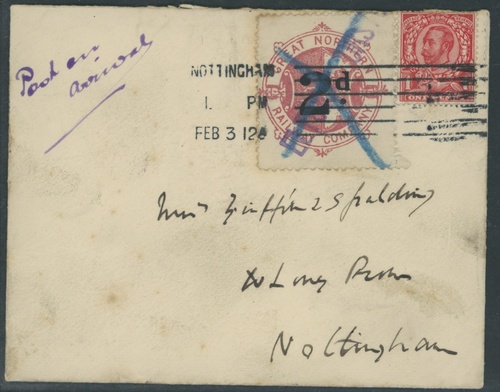 Post on
arrival
NOTTINGHAM
1 PM
FEB 3 12
GREAT NORTHERN
2d
RAILWAY COMPANY
Griffin & Spalding
Long Row
Nottingham